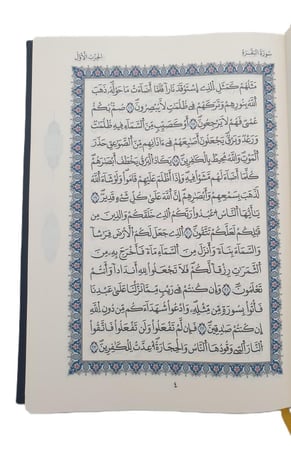 سُورَةُ البَقَرَةِ
الجُزْءُ الأَوَّلُ
مَثَلُهُمْ كَمَثَلِ ٱلَّذِى ٱسْتَوْقَدَ نَارًا فَلَمَّآ أَضَآءَتْ مَا حَوْلَهُۥ ذَهَبَ
ٱللَّهُ بِنُورِهِمْ وَتَرَكَهُمْ فِى ظُلُمَٰتٍ لَّا يُبْصِرُونَ ١٧ صُمٌّۢ بُكْمٌ
عُمْىٌ فَهُمْ لَا يَرْجِعُونَ ١٨ أَوْ كَصَيِّبٍ مِّنَ ٱلسَّمَآءِ فِيهِ ظُلُمَٰتٌ
وَرَعْدٌ وَبَرْقٌ يَجْعَلُونَ أَصَٰبِعَهُمْ فِىٓ ءَاذَانِهِم مِّنَ ٱلصَّوَٰعِقِ حَذَرَ
ٱلْمَوْتِ وَٱللَّهُ مُحِيطٌۢ بِٱلْكَٰفِرِينَ ١٩ يَكَادُ ٱلْبَرْقُ يَخْطَفُ أَبْصَٰرَهُمْ
كُلَّمَآ أَضَآءَ لَهُم مَّشَوْا۟ فِيهِ وَإِذَآ أَظْلَمَ عَلَيْهِمْ قَامُوا۟ وَلَوْ شَآءَ ٱللَّهُ
لَذَهَبَ بِسَمْعِهِمْ وَأَبْصَٰرِهِمْ إِنَّ ٱللَّهَ عَلَىٰ كُلِّ شَىْءٍ قَدِيرٌ ٢٠
يَٰٓأَيُّهَا ٱلنَّاسُ ٱعْبُدُوا۟ رَبَّكُمُ ٱلَّذِى خَلَقَكُمْ وَٱلَّذِينَ مِن
قَبْلِكُمْ لَعَلَّكُمْ تَتَّقُونَ ٢١ ٱلَّذِى جَعَلَ لَكُمُ ٱلْأَرْضَ فِرَٰشًا
وَٱلسَّمَآءَ بِنَآءً وَأَنزَلَ مِنَ ٱلسَّمَآءِ مَآءً فَأَخْرَجَ بِهِۦ مِنَ
ٱلثَّمَرَٰتِ رِزْقًا لَّكُمْ فَلَا تَجْعَلُوا۟ لِلَّهِ أَندَادًا وَأَنتُمْ
تَعْلَمُونَ ٢٢ وَإِن كُنتُمْ فِى رَيْبٍ مِّمَّا نَزَّلْنَا عَلَىٰ عَبْدِنَا
فَأْتُوا۟ بِسُورَةٍ مِّن مِّثْلِهِۦ وَٱدْعُوا۟ شُهَدَآءَكُم مِّن دُونِ ٱللَّهِ
إِن كُنتُمْ صَٰدِقِينَ ٢٣ فَإِن لَّمْ تَفْعَلُوا۟ وَلَن تَفْعَلُوا۟ فَٱتَّقُوا۟
ٱلنَّارَ ٱلَّتِى وَقُودُهَا ٱلنَّاسُ وَٱلْحِجَارَةُ أُعِدَّتْ لِلْكَٰفِرِينَ ٢٤
٤